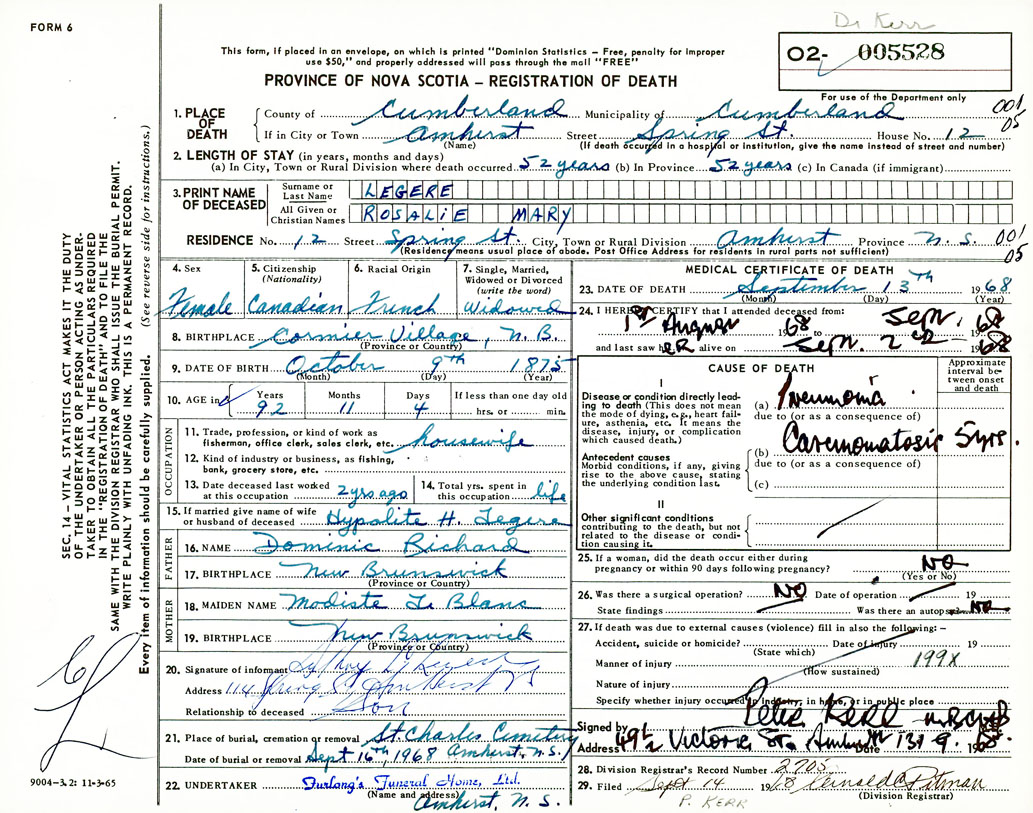 Dr Kerr
FORM 6
O2- 005528
This form, if placed in an envelope, on which is printed "Dominion Statistics – Free, penalty for improper
use $50," and properly addressed will pass through the mail "FREE"
PROVINCE OF NOVA SCOTIA – REGISTRATION OF DEATH
For use of the Department only
001
05
1. PLACE OF DEATH
County of Cumberland Municipality of Cumberland
If in City or Town Amherst Street Spring St. House No. 12
(Name) (If death occurred in a hospital or institution, give the name instead of street and number)
2. LENGTH OF STAY (in years, months and days)
(a) In City, Town or Rural Division where death occurred 52 years (b) In Province 52 years (c) In Canada (if immigrant)
3. PRINT NAME OF DECEASED
Surname or Last Name LEGERE
All Given or Christian Names ROSALIE MARY
RESIDENCE No. 12 Street Spring St. City, Town or Rural Division Amherst Province N. S. 001
05
(Residence means usual place of abode. Post Office Address for residents in rural parts not sufficient)
4. Sex
Female
5. Citizenship
(Nationality)
Canadian
6. Racial Origin
French
7. Single, Married,
Widowed or Divorced
(write the word)
Widowed
8. BIRTHPLACE Cormier Village, N. B.
(Province or Country)
9. DATE OF BIRTH October 9th 1875
(Month) (Day) (Year)
10. AGE in
Years Months Days If less than one day old
92 11 4 hrs. or min.
OCCUPATION
11. Trade, profession, or kind of work as
fisherman, office clerk, sales clerk, etc. housewife
12. Kind of industry or business, as fishing,
bank, grocery store, etc.
13. Date deceased last worked
at this occupation 2 yrs ago
14. Total yrs. spent in
this occupation life
15. If married give name of wife
or husband of deceased Hypolite H. Legere
FATHER
16. NAME Dominic Richard
17. BIRTHPLACE New Brunswick
(Province or Country)
MOTHER
18. MAIDEN NAME Modiste Le Blanc
19. BIRTHPLACE New Brunswick
(Province or Country)
20. Signature of informant
Address 114 Spring St Amherst NS
Relationship to deceased Son
21. Place of burial, cremation or removal St. Charles Cemetery
Date of burial or removal Sept 16th, 1968 Amherst, N.S.
22. UNDERTAKER Furlong's Funeral Home, Ltd.
(Name and address)
Amherst, N. S.
MEDICAL CERTIFICATE OF DEATH
23. DATE OF DEATH September 13Th 1968
(Month) (Day) (Year)
24. I HEREBY CERTIFY that I attended deceased from:
1st August 1968 to Sept. 1968
and last saw her alive on Sept. 2nd 1968
CAUSE OF DEATH
Approximate
interval be-
tween onset
and death
I
Disease or condition directly lead-
ing to death (This does not mean
the mode of dying, e.g., heart fail-
ure, asthenia, etc. It means the
disease, injury, or complication
which caused death.)
(a) Pneumonia
due to (or as a consequence of)
Antecedent causes
Morbid conditions, if any, giving
rise to the above cause, stating
the underlying condition last.
(b) Carcinomatosis 5 yrs.
due to (or as a consequence of)
(c)
II
Other significant conditions
contributing to the death, but not
related to the disease or condi-
tion causing it.
25. If a woman, did the death occur either during
pregnancy or within 90 days following pregnancy? NO
(Yes or No)
26. Was there a surgical operation? NO Date of operation 19
State findings Was there an autopsy? NO
27. If death was due to external causes (violence) fill in also the following:–
Accident, suicide or homicide? Date of injury 19
(State which)
Manner of injury 199X
(How sustained)
Nature of injury
Specify whether injury occurred in industry, in home, or in public place
Signed by Peter Kerr
Address 49 1/2 Victoria St. Amherst Date 13-9- 1968
28. Division Registrar's Record Number 2705
29. Filed Sept 14 1968
(Division Registrar)
P. KERR
SEC. 14 – VITAL STATISTICS ACT MAKES IT THE DUTY
OF THE UNDERTAKER OR PERSON ACTING AS UNDER-
TAKER TO OBTAIN ALL THE PARTICULARS REQUIRED
IN THE "REGISTRATION OF DEATH" AND TO FILE THE
SAME WITH THE DIVISION REGISTRAR WHO SHALL ISSUE THE BURIAL PERMIT.
WRITE PLAINLY WITH UNFADING INK. THIS IS A PERMANENT RECORD.
Every item of information should be carefully supplied. (See reverse side for instructions.)
9004–3.2: 11-3-65